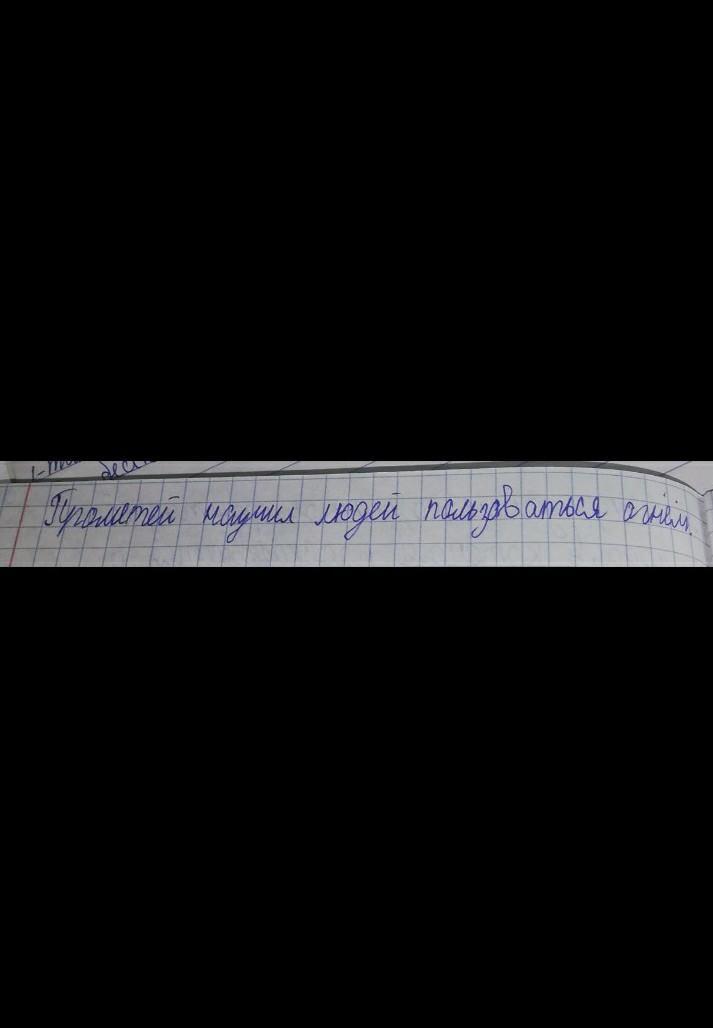 Прометей научил людей пользоваться огнём.